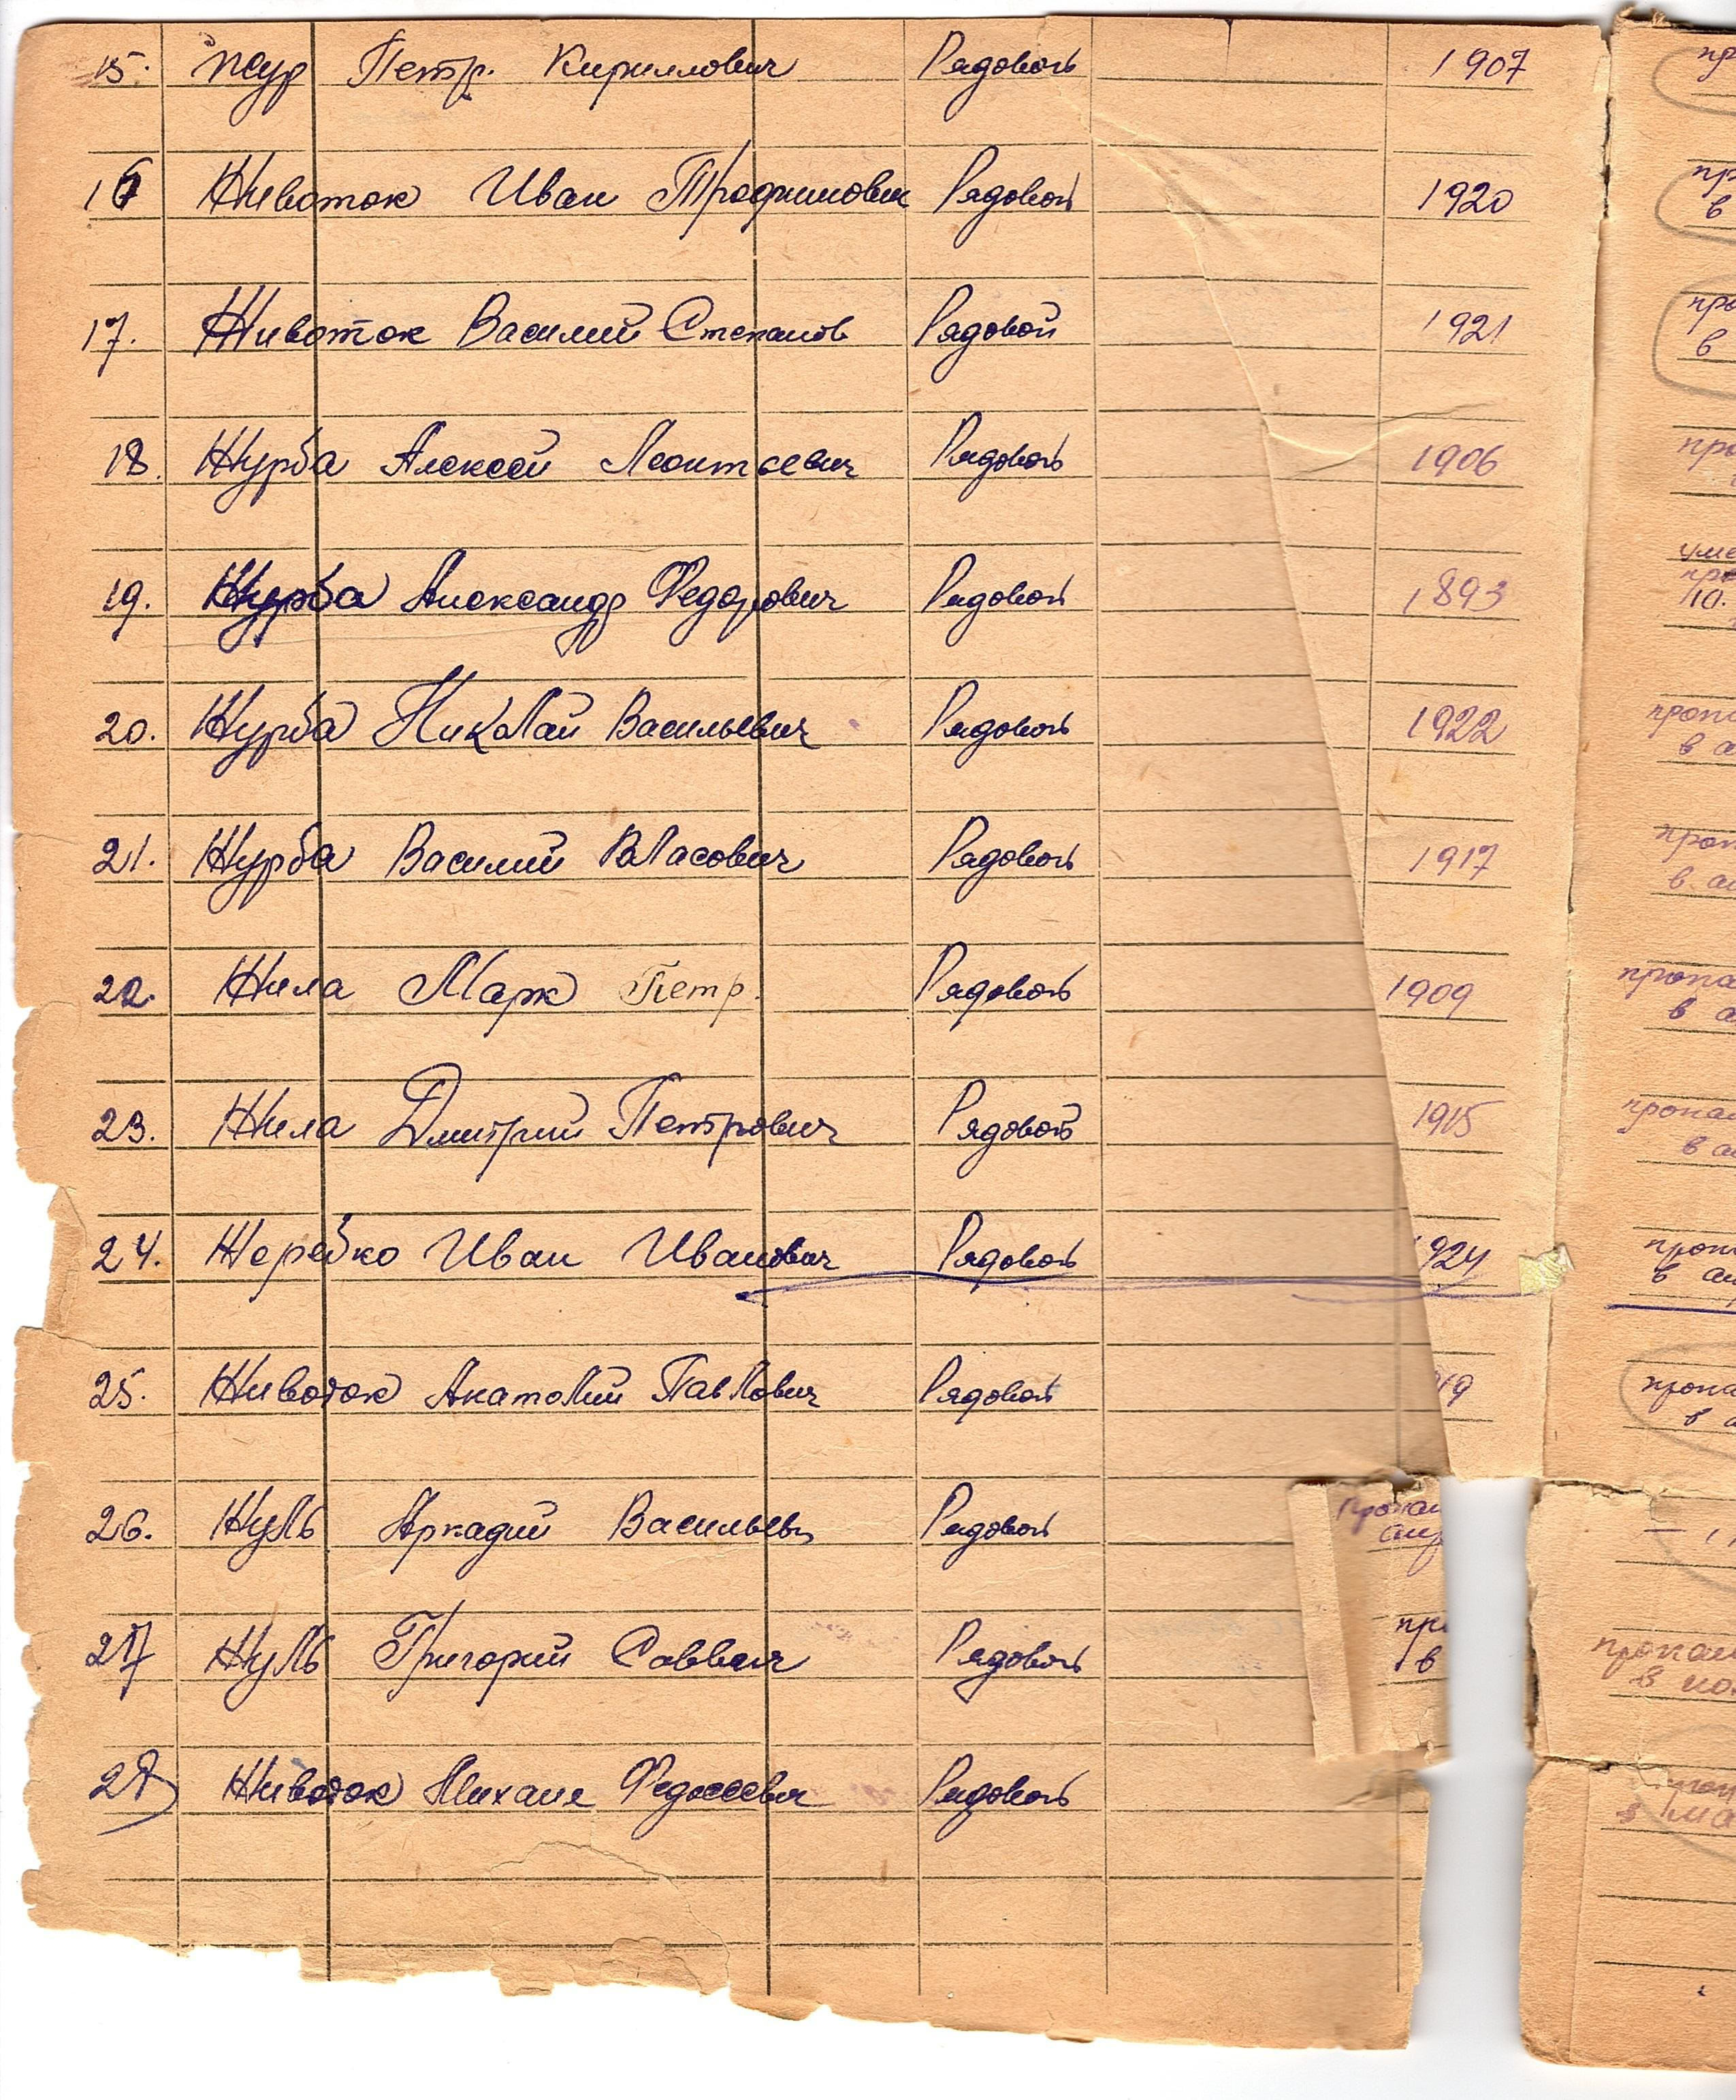 15. Жур Петр. Кириллович Рядовой 1907
16 Животок Иван Трофимович Рядовой 1920
17. Животок Василий Степанов Рядовой 1921
18. Журба Алексей Леонтьевич Рядовой 1906
19. Журба Александр Федорович Рядовой 1893
20. Журба Николай Васильевич Рядовой 1922
21. Журба Василий Власович Рядовой 1917
22. Жила Марк Петр. Рядовой 1909
23. Жила Дмитрий Петрович Рядовой 1915
24. Жеребко Иван Иванович Рядовой 924
25. Животок Анатолий Павлович Рядовой 19
26. Жуль Аркадий Васильев Рядовой
27 Жуль Григорий Саввич Рядовой
28 Животок Михаил Федосеевич Рядовой